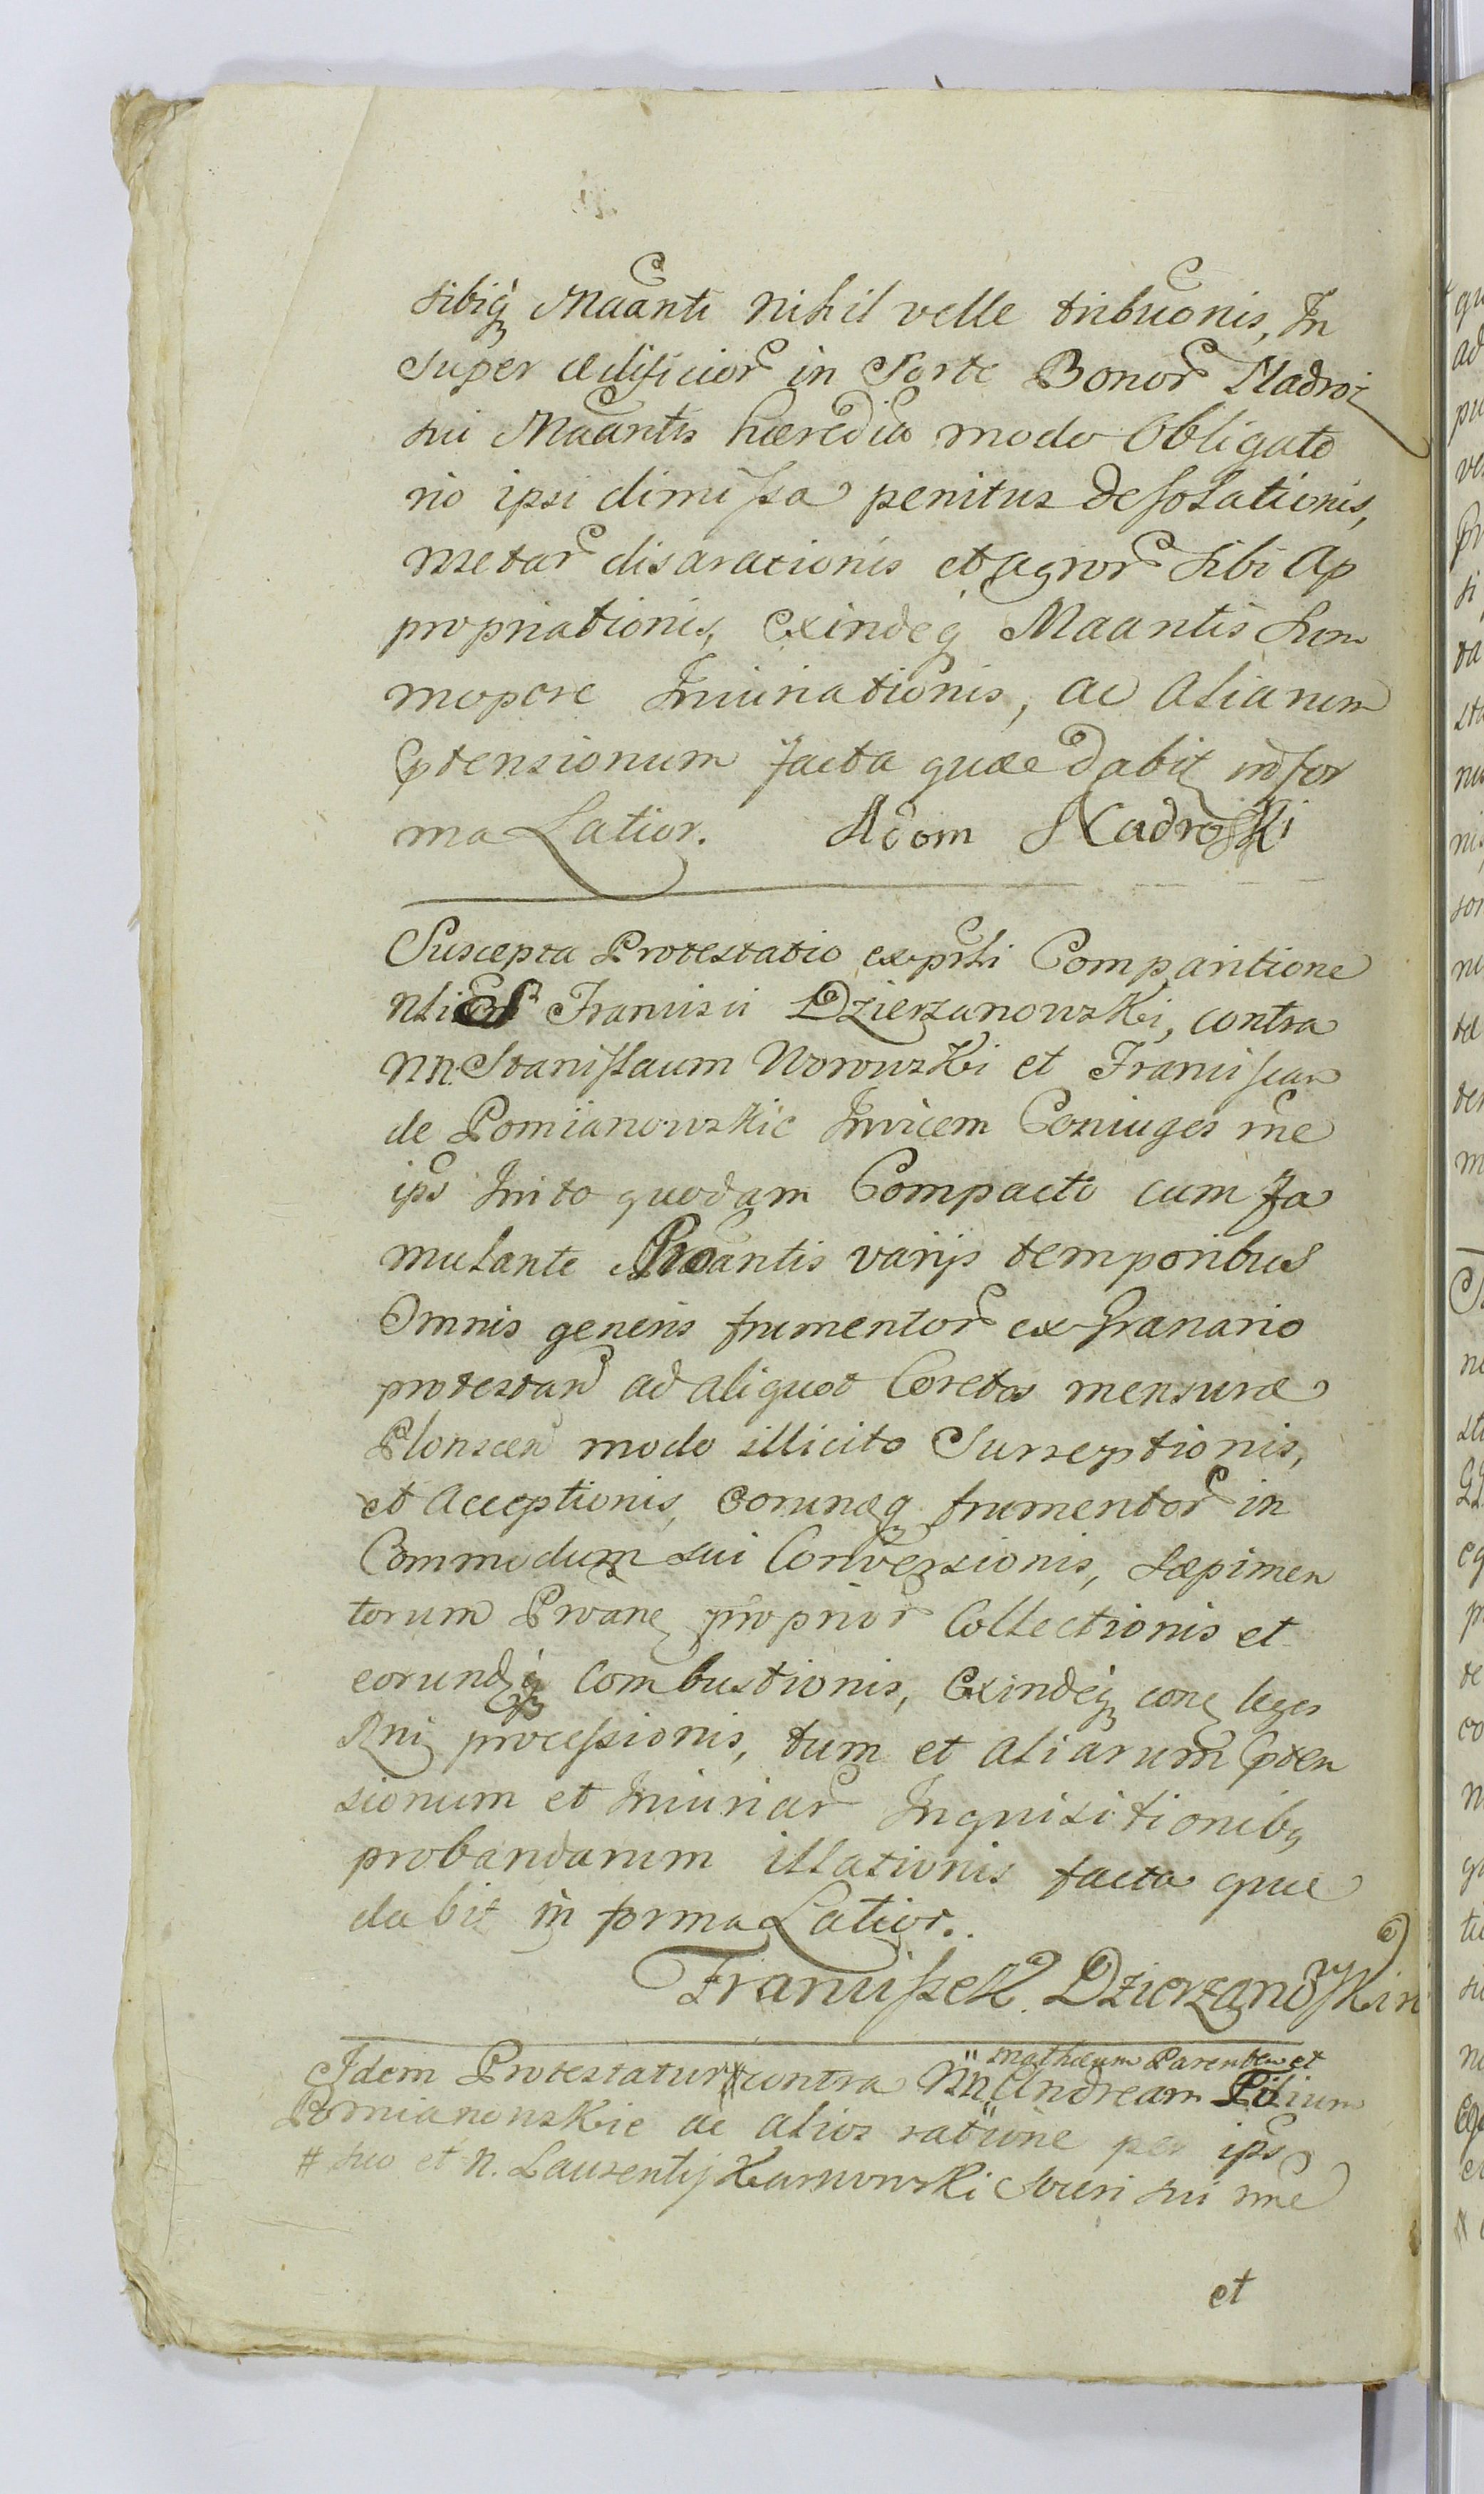 sibiq Maanti nihil velle tribuonis, In
super ædificior in Sorte Bonor Nadroż
sui Maantis hæredita modo Obligato
rio ipsi dimissa penitus desolationis,
metar disarationis et agror sibi Ap
propriationis, Exindeq Maantis Sum
mopere Iniuriationis, ac Aliarum
Ptensionum facta quæ dabit in for
ma Latior. Adam Nadroski
Suscepta Protestatio ex prsti Comparitione
Francisci Dzierzanowski, contra
NN. Stanislaum Worowski et Franciscam
de Pomianowskie Invicem Coniuges rne
ips Inito quodam Compacto cum fa
mulante Proantis varijs temporibus
Omnis generis frumentor ex Granario
protestan ad aliquot Coretos mensuræ
Plonscen modo illicito Surreptionis,
et Acceptionis, eorumq frumentor in
Commodum sui Conversionis, sæpimen
torum Proane proprior Collectionis et
eorundq Combustionis, Exindeq cone leges
Rni processionis, tum et aliarum Pten
sionum et Iniuriar Inquisitionibq
probandarum illationis facta quæ
dabit in forma Latior.
Franciszek Dzierzanowski
Mathæum Parentem et
Idem Protestatur # contra NN. Andream Filium
Pomianowskie ac alios ratione per ips
# suo et N. Laurentij Karnowski Soceri sui rne
et